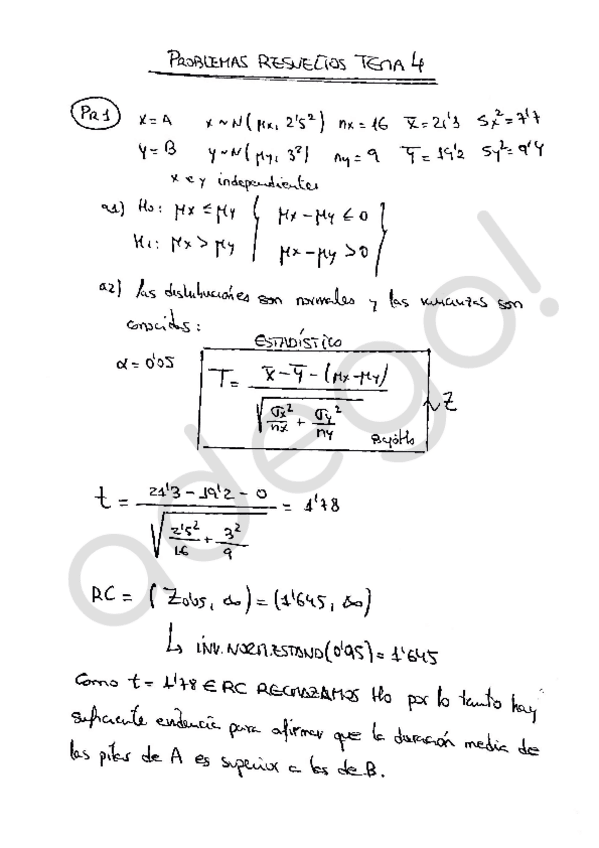 PROBLEMAS RESUELTOS TEMA 4
PR1 X = A X ~ N(μx, 2'5²) nx = 16 x̄ = 21'3 Sx² = 7'7
Y = B Y ~ N(μy, 3²) ny = 9 ȳ = 19'2 Sy² = 9'4
X e Y independientes
a1) H₀: μx ≤ μy { μx - μy ≤ 0 }
H₁: μx > μy { μx - μy > 0 }
a2) las distribuciones son normales y las varianzas son
conocidas:
ESTADÍSTICO
α = 0'05 T = (x̄ - ȳ - (μx - μy)) / √(σx²/nx + σy²/ny) ~ Z
Bajo H₀
t = (21'3 - 19'2 - 0) / √(2'5²/16 + 3²/9) = 1'78
RC = (Z0'05, ∞) = (1'645, ∞)
↳ INV.NORM.ESTAND(0'95) = 1'645
Como t = 1'78 ∈ RC RECHAZAMOS H₀ por lo tanto hay
suficiente evidencia para afirmar que la duración media de
las pilas de A es superior a las de B.
adego!